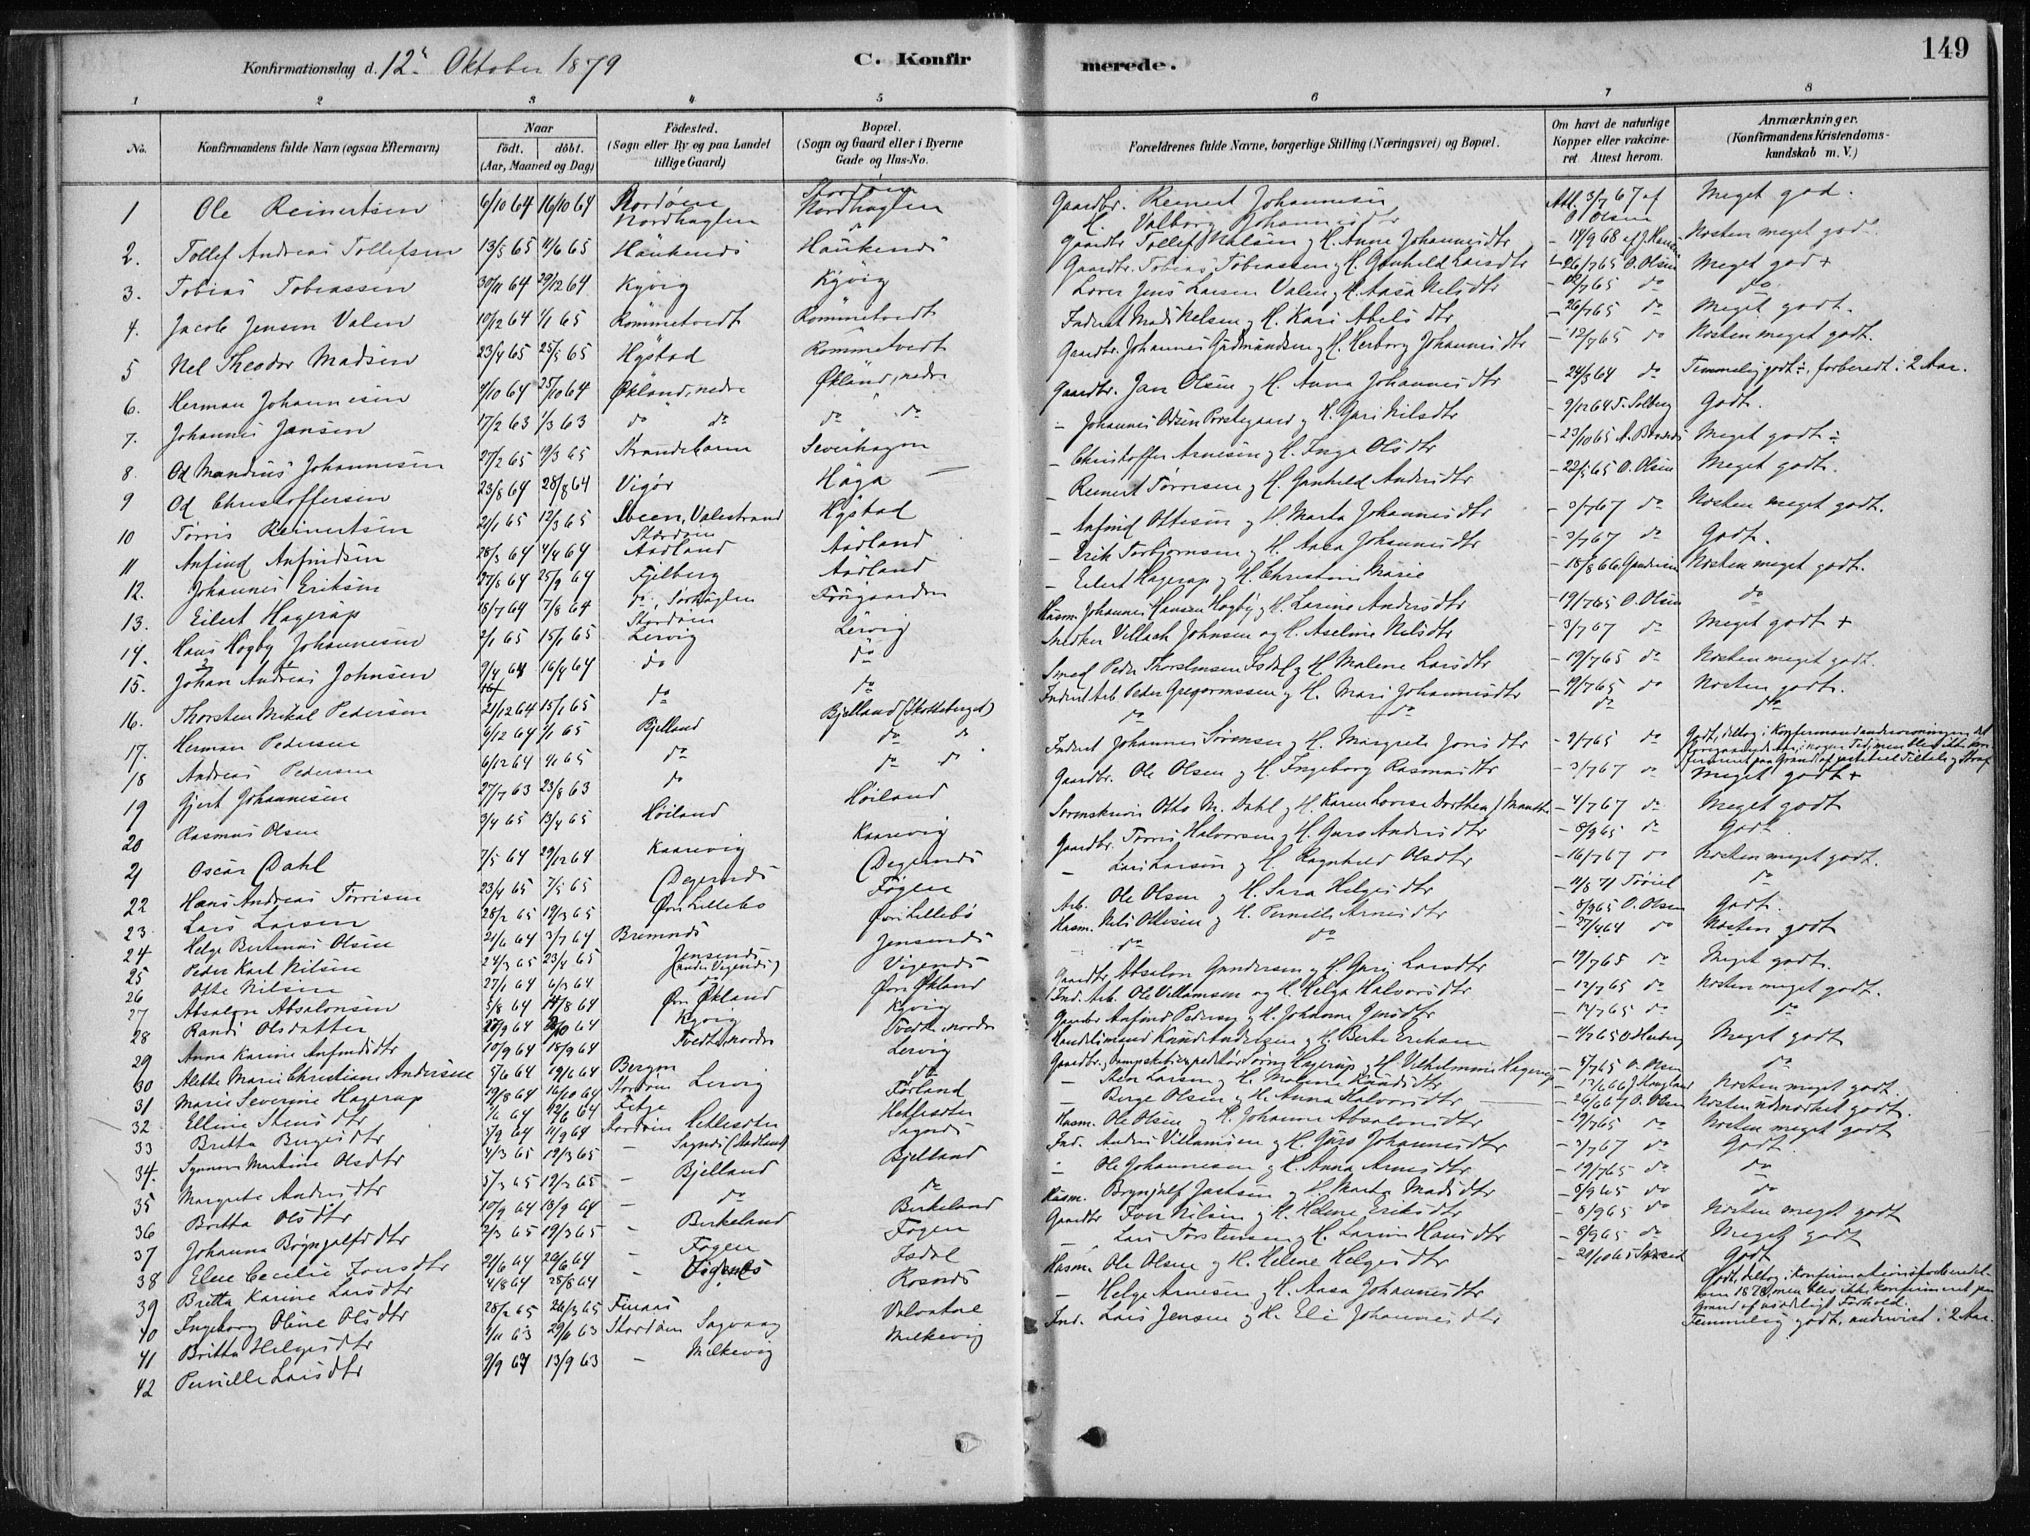 149
Konfirmationsdag d. 12te Oktober 1879 C. Konfirmerede.
1 2 3 4 5 6 7 8
No. Konfirmandens fulde Navn (ogsaa Efternavn) Naar født. døbt. (Aar, Maaned og Dag) Fødested. (Sogn eller By og paa Landet tillige Gaard) Bopæl. (Sogn og Gaard eller i Byerne Gade og Hus-No. Forældrenes fulde Navne, borgerlige Stilling (Næringsvei) og Bopæl. Om havt de naturlige Kopper eller vakcineret. Attest herom. Anmærkninger. (Konfirmandens Kristendomskundskab m. V.)
1 Ole Reinertsen 6/10 64 16/10 64 Stordøen Nordhuglen Stordøen Nordhuglen Gaardbr. Reinert Johannesen H. Valborg Johannesdtr Att. 3/7 67 af O Olsen Meget god.
2. Tollef Andreas Tollefsen 13/5 65 11/6 65 Haukenæs Haukenæs Gaardbr Tollef Nilsen & H. Anne Johannesdtr - 14/9 68 af J. Næsten meget god
3. Tobias Tobiassen 30/11 64 29/12 64 Kyvig Kyvig Gaardbr. Tobias Tobiassen & H. Gunhild Larsdtr 26/7 65 O. Olsen Meget god +
4. Jacob Jensen Valen 10/12 64 1/1 65 Rommetvedt Rommetvedt Jens Larsen Valen & H. Aasa Nilsdtr 12/7 65 do do
5 Nel Theodor Madsen 23/4 65 25/5 65 Hystad Rommetvedt Inderst Mads Nelsen & H. Kari Abelsdtr - 26/7 65 do Meget godt.
6. Herman Johannesen 7/10 64 25/10 64 Økland, nedre Økland, nedre Gaardbr. Johannes Gudmundsen & H. Herborg Johannesdtr - 12/7 65 do Næsten meget godt.
7. Johannes Jansen 17/2 63 1/3 63 do do do do Gaardbr. Jan Olsen & H. Anna Johannesdtr - 24/3 64 do Temmelig godt, forberedt i 2 Aar.
8. Od Mandrus Johannesen 27/2 65 19/3 65 Strandebarm Severhagen - Johannes Odsen & H. Guri Nilsdtr - 9/12 64 T. Solberg Godt.
9 Od Christoffersen 23/8 64 28/8 64 Vigør Haga - Christoffer Arnesen & H. Inga Olsdtr - 23/10 65 Meget godt
10 Tørris Reinertsen 21/1 65 12/3 65 Sveen, Valestrand Hystad - Reinert Tørresen & H. Gunhild Andersdtr - 22/5 65 O. Olsen Meget godt.
11 Anfind Anfindsen 28/3 64 4/4 64 Stordøen Aadland Aadland - Anfind Ottesen & H. Marta Johannesdtr - 3/7 67 do Næsten meget godt.
12. Johannes Eriksen 27/8 64 25/9 64 Fjelberg Aadland - Erik Torbjørnsen & H. Aasa Johannesdtr - 3/7 67 do Godt.
13. Eilert Hagerup 18/7 64 7/8 64 do, Sørhuglen - Eilert Hagerup & H. Christine Marie - 18/8 66 Næsten meget godt.
14. Hans Høgby Johannesen 2/1 65 15/1 65 Stordøen Lervig Lervig Husm. Johannes Hansen Høgby & H. Larine Andersdtr - 19/7 65 O. Olsen do
15. Johan Andreas Johnsen 9/4 64 16/4 64 do do Snedker Villach Johnsen og H. Aseline Nilsdtr - 3/7 67 do Meget godt +
16. Thorsten Mikal Pedersen 21/12 64 15/1 65 do do Smed Peder Thorstensen Isdal & H. Malene Larsdtr - 19/7 65 do Næsten meget godt.
17. Herman Pedersen 6/12 64 1/1 65 Bjelland Bjelland Inderst Arb. Peder Gregoriussen & H. Mari Johannesdtr - 19/7 65 do Næsten godt.
18 Andreas Pedersen 6/12 64 1/1 65 do do do do do do do
19 Gjert Johannesen 27/7 63 23/8 63 do do do Inderst Johannes Sørensen & H. Margrete Jonsdtr - 9/7 65 do
20 Rasmus Olsen 3/4 65 13/4 65 Høiland Høiland Gaardbr. Ole Olsen & H. Ingeborg Rasmusdtr - 3/7 67 do Meget godt +
21 Oscar Dahl 7/5 64 29/12 64 Kaarevig Kaarevig Sorenskriver Otto M. Dahl & H. Karen Lovise Dorthea - 4/7 67 do Meget godt
22 Hans Andreas Tørrisen 23/4 65 7/5 65 Digernæs Digernæs Gaardbr. Tørris Halvorsen & H. Guro Andersdtr - 8/9 65 do Godt
23. Lars Larsen 28/2 65 19/3 65 Øvre Lillebø Føgen - Lars Larsen & H. Ragnhild Olsdtr - 16/7 67 do Næsten meget godt.
24 Helge Bertinus Olsen 21/6 64 3/7 64 Bremnes Øvre Lillebø Arb. Ole Olsen & H. Sara Helgesdtr - 11/8 71 do
25 Peder Karl Nilsen 24/3 65 23/4 65 Jensenæs Jensenæs Husm. Nils Ottesen & H. Pernille Arnesdtr 8/9 65 O. Olsen Godt.
26 Otte Nilsen 27/1 64 6/3 64 Vigenæs do do - 27/4 64 do Næsten godt
27 Absalon Absalonsen 5/8 64 14/8 64 Øvre Økland Øvre Økland Gaardbr. Absalon Gundersen & H. Guri Larsdtr - 19/7 65 do Meget godt.
28 Randi Olsdatter 20/9 64 64 Kyvig Kyvig Ind. Arb. Ole Villumsen og H. Helga Halvorsdtr - 12/7 65 do Næsten meget godt.
29 Anna Karine Anfindsdtr 10/9 64 18/9 64 Tvedte, nordre Tvedte, nordre Gaardbr Anfind Pedersen & H. Johanne Jensdtr - 12/7 65 do do
30 Alette Marie Christiane Andersen 5/6 64 19/6 64 Bergen Lervig Handelsmand Knud Andersen & H. Berte Eriksen Meget godt
31 Marie Severine Hagerup 19/8 64 16/10 64 Stordøen Lervig do Gaardbr., Dampskibsexpeditør Hagerup & H. Vilhelmine Hagerup - 5/7 65 O. Olsen do
32 Elline Stensdtr 64 12/6 64 Fitje Førland - Sten Larsen & H. Malene Knudsdtr Næsten meget godt.
33 Britta Bergesdtr 5/9 64 11/9 64 Stordøen Hetlesæter Hetlesæter - Berge Olsen & H. Anna Halvorsdtr - 26/6 67 O. Olsen Næsten udmærket godt.
34. Synneva Martine Olsdtr 4/3 65 19/3 65 - Sagnæs (Aadland) Sagnæs Husm. Ole Olsen & H. Johanne Absalonsdtr - 19/7 65 do Næsten meget godt
35 Margrete Andersdtr 5/3 65 19/3 65 - Bjelland Bjelland Ind. Anders Villumsen & H. Guro Johannesdtr - 3/7 67 do Godt.
36 Britta Olsdtr 10/9 64 13/9 64 - do do - Ole Johannesen & H. Anna Arnesdtr - 19/7 65 do do
37 Johanna Brynjulfsdtr 2/3 65 19/3 65 - Birkeland Birkeland Husm. Brynjulf Jostsen & H. Marta Madsdtr - 8/9 65 do do
38 Elene Cecilie Ivarsdtr 21/6 64 26/6 64 - Føgen Føgen Gaardbr Iver Nilsen & H. Helene Eriksdtr - 8/9 65 do Næsten meget godt
39 Britta Karine Larsdtr 4/8 64 28/8 64 - Isdal - Lars Torstensen & H. Larine Hansdtr - 8/9 65 do Meget godt
40 Ingeborg Oline Olsdtr 28/2 65 26/3 65 Finaas Rosnæs Husm. Ole Olsen & H. Helene Helgesdtr Godt
41 Britta Helgesdtr 9/11 63 29/11 63 Stordøen Sagvaag Valvatne - Helge Arnesen & H. Aasa Johannesdtr
42 Pernille Larsdtr 9/9 64 13/9 63 - Milkevig Milkevig Ind. Lars Jensen & H. Eli Johannesdtr Temmelig godt, undervist i 2 Aar.